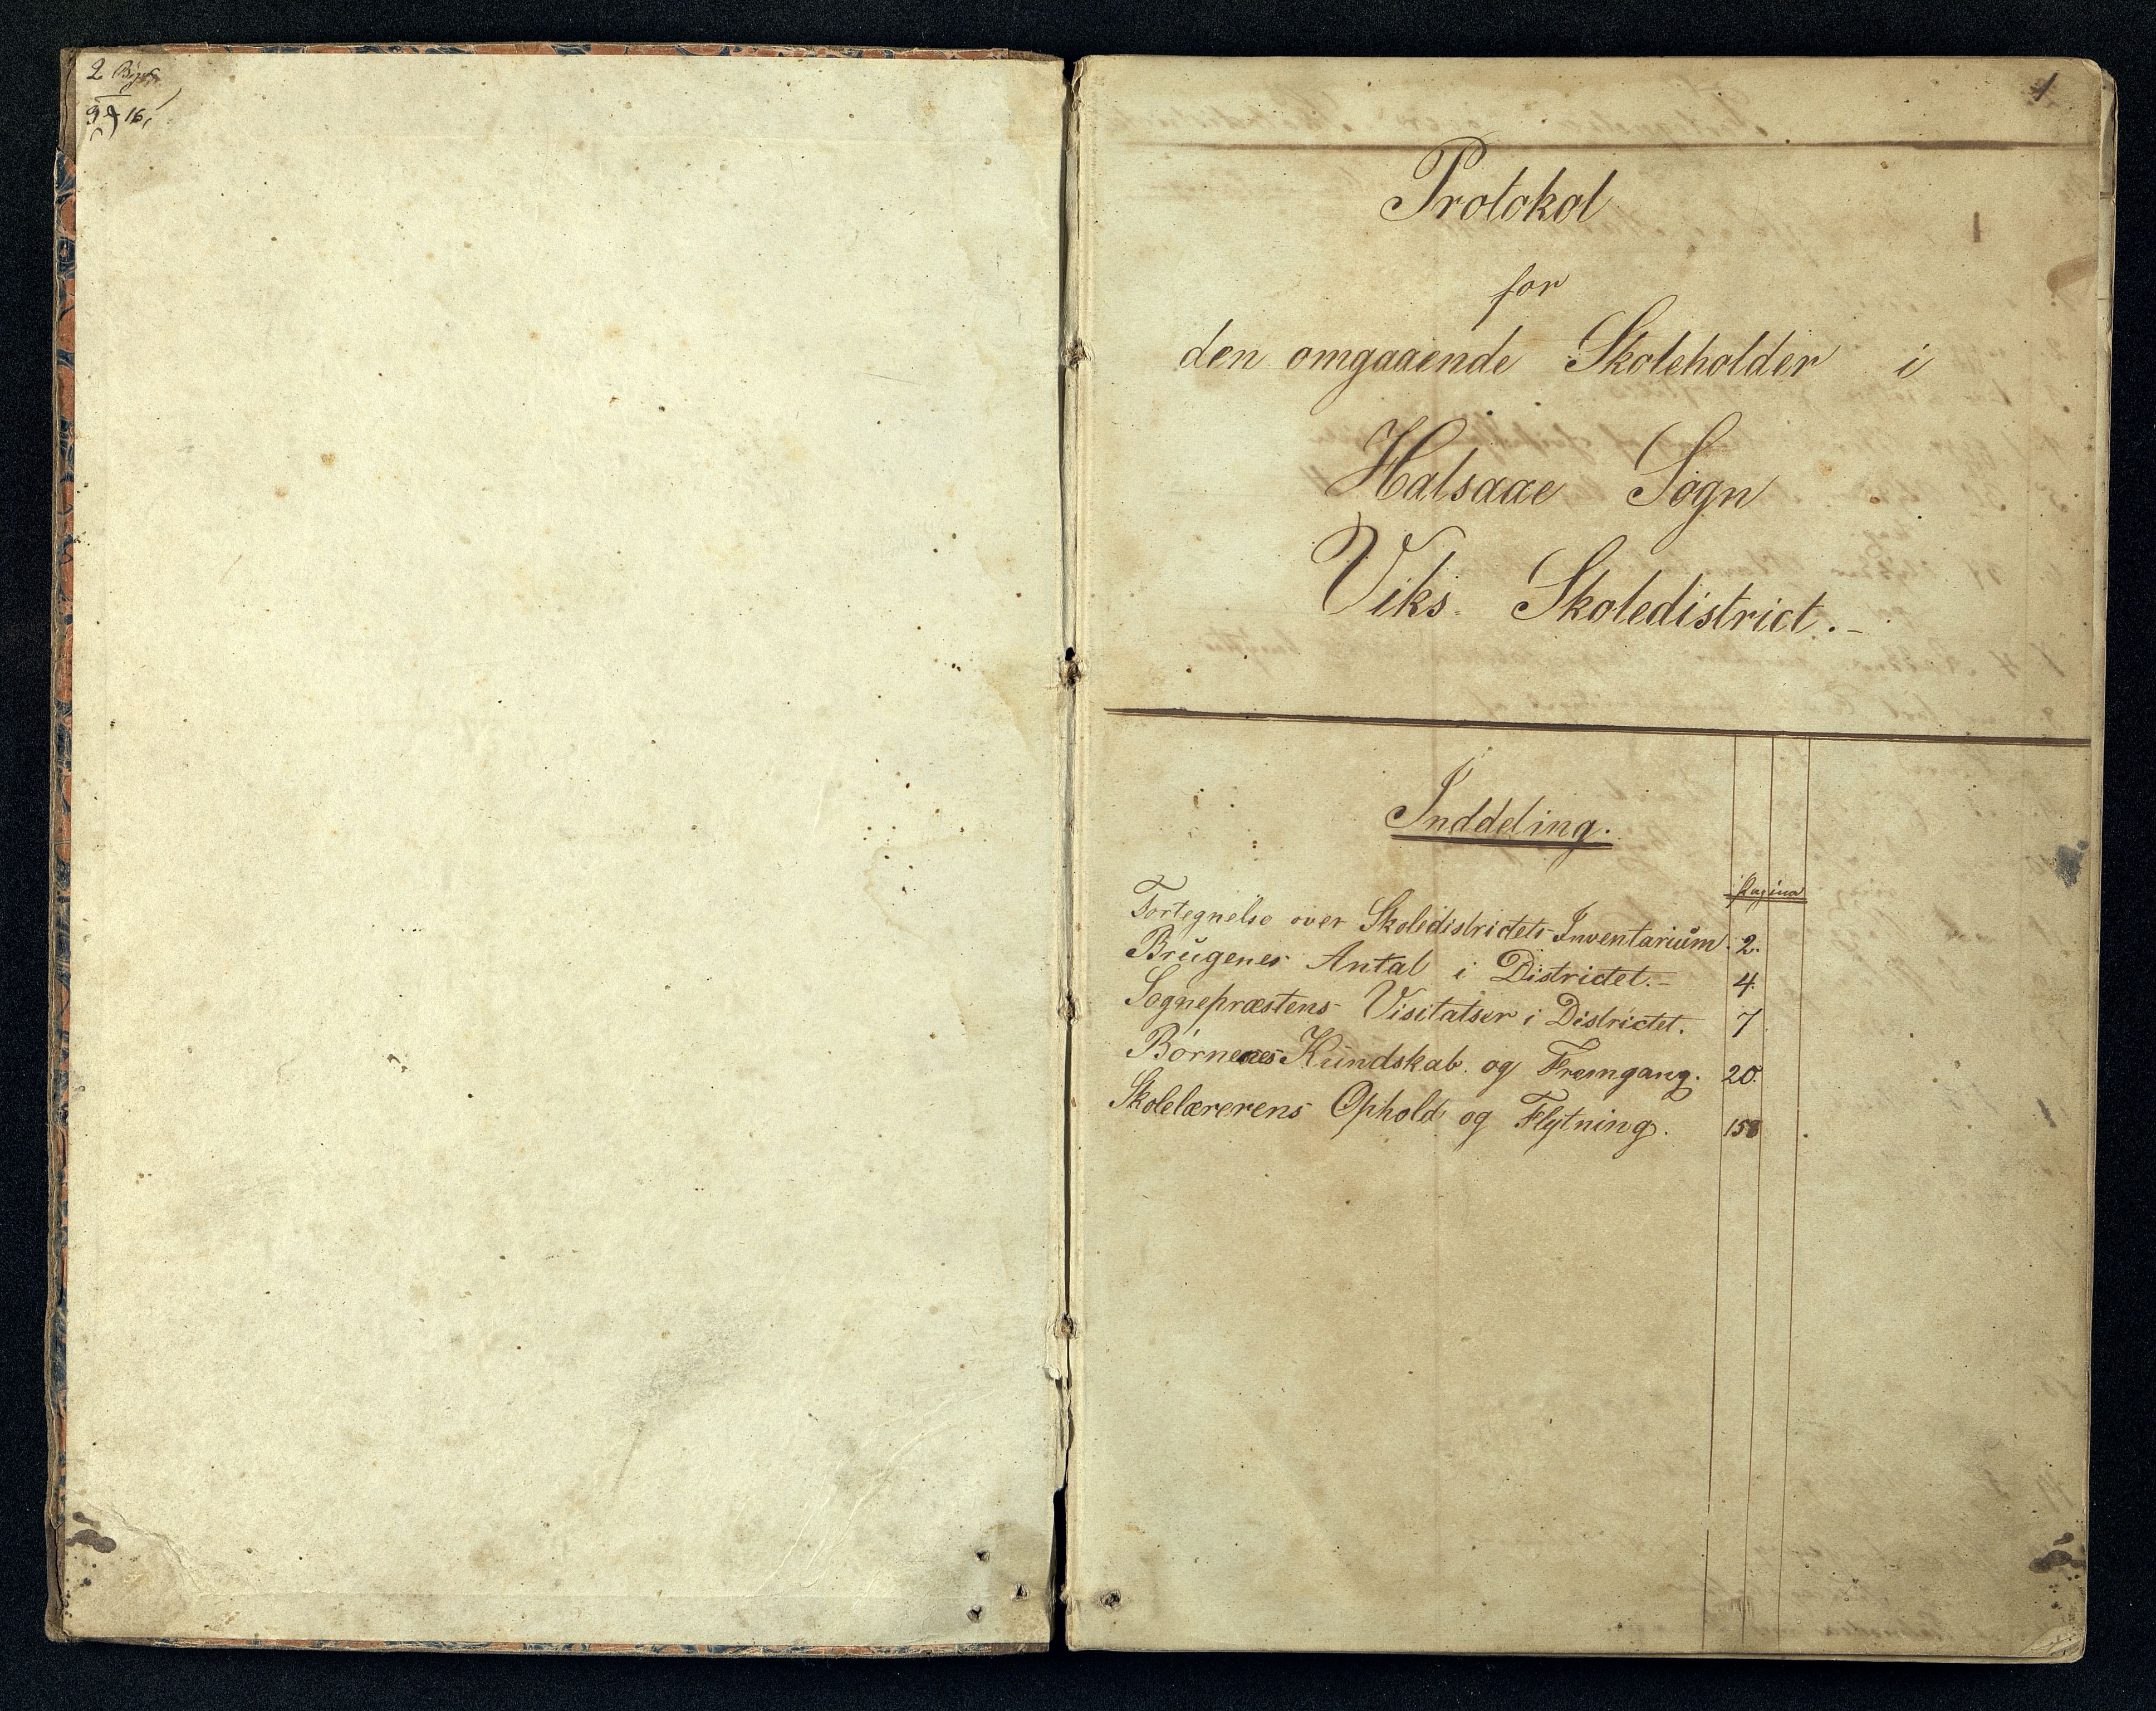 2
16
1
Protokol
for
den omgaaende Skoleholder i
Halsaae Sogn
Viks Skoledistrict.-
Inddeling.
Pagina
Fortegnelse over Skoledistrictets Inventarium. 2.
Brugenes Antal i Districtet.- 4.
Sognepræstens Visitatser i Districtet. 7
Børnenes Kundskab og Fremgang. 20.
Skolelærerens Ophold og Flytning. 158